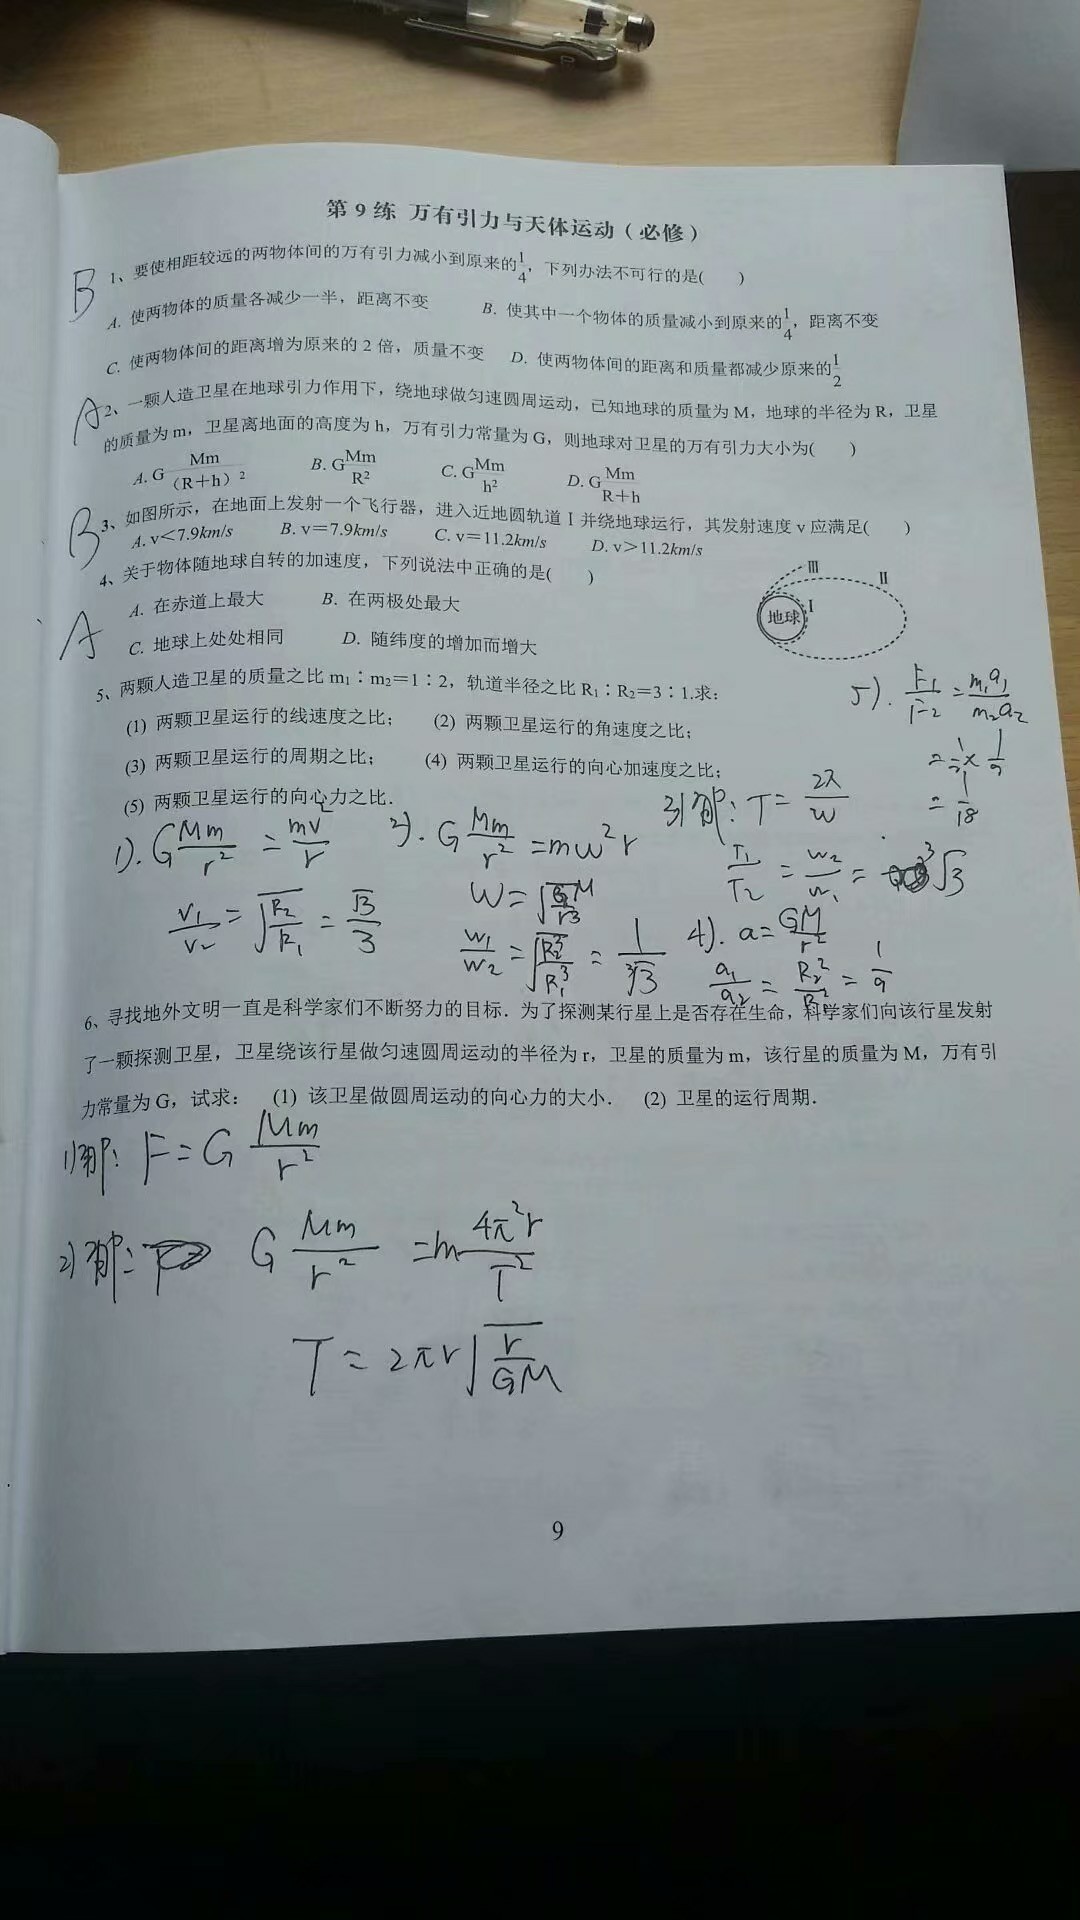 第 9 练 万有引力与天体运动（必修）
B
1、要使相距较远的两物体间的万有引力减小到原来的1/4，下列办法不可行的是(　　)
A. 使两物体的质量各减少一半，距离不变　B. 使其中一个物体的质量减小到原来的1/4，距离不变
C. 使两物体间的距离增为原来的 2 倍，质量不变　D. 使两物体间的距离和质量都减少原来的1/2
A
2、一颗人造卫星在地球引力作用下，绕地球做匀速圆周运动，已知地球的质量为 M，地球的半径为 R，卫星
的质量为 m，卫星离地面的高度为 h，万有引力常量为 G，则地球对卫星的万有引力大小为(　　)
A. G Mm/（R＋h）²　B. G Mm/R²　C. G Mm/h²　D. G Mm/R＋h
B
3、如图所示，在地面上发射一个飞行器，进入近地圆轨道 I 并绕地球运行，其发射速度 v 应满足(　　)
A. v＜7.9km/s　B. v＝7.9km/s　C. v＝11.2km/s　D. v＞11.2km/s
4、关于物体随地球自转的加速度，下列说法中正确的是(　　)
A. 在赤道上最大　B. 在两极处最大
A
C. 地球上处处相同　D. 随纬度的增加而增大
III
II
I
地球
5、两颗人造卫星的质量之比 m₁∶m₂＝1∶2，轨道半径之比 R₁∶R₂＝3∶1.求：
(1) 两颗卫星运行的线速度之比；　(2) 两颗卫星运行的角速度之比；
(3) 两颗卫星运行的周期之比；　(4) 两颗卫星运行的向心加速度之比；
(5) 两颗卫星运行的向心力之比．
1). G Mm/r² = mv²/r
v₁/v₂ = √(R₂/R₁) = √3/3
2). G Mm/r² = mω²r
ω = √(GM/r³)
ω₁/ω₂ = √(R₂³/R₁³) = 1/³√3
3) 解: T = 2π/ω
T₁/T₂ = ω₂/ω₁ = ³√3
4). a = GM/r²
a₁/a₂ = R₂²/R₁² = 1/9
5). F₁/F₂ = m₁a₁/m₂a₂
= 1/2 × 1/9
= 1/18
6、寻找地外文明一直是科学家们不断努力的目标．为了探测某行星上是否存在生命，科学家们向该行星发射
了一颗探测卫星，卫星绕该行星做匀速圆周运动的半径为 r，卫星的质量为 m，该行星的质量为 M，万有引
力常量为 G，试求：　(1) 该卫星做圆周运动的向心力的大小．　(2) 卫星的运行周期．
1) 解: F = G Mm/r²
2) 解: G Mm/r² = m 4π²r/T²
T = 2πr√(r/GM)
9